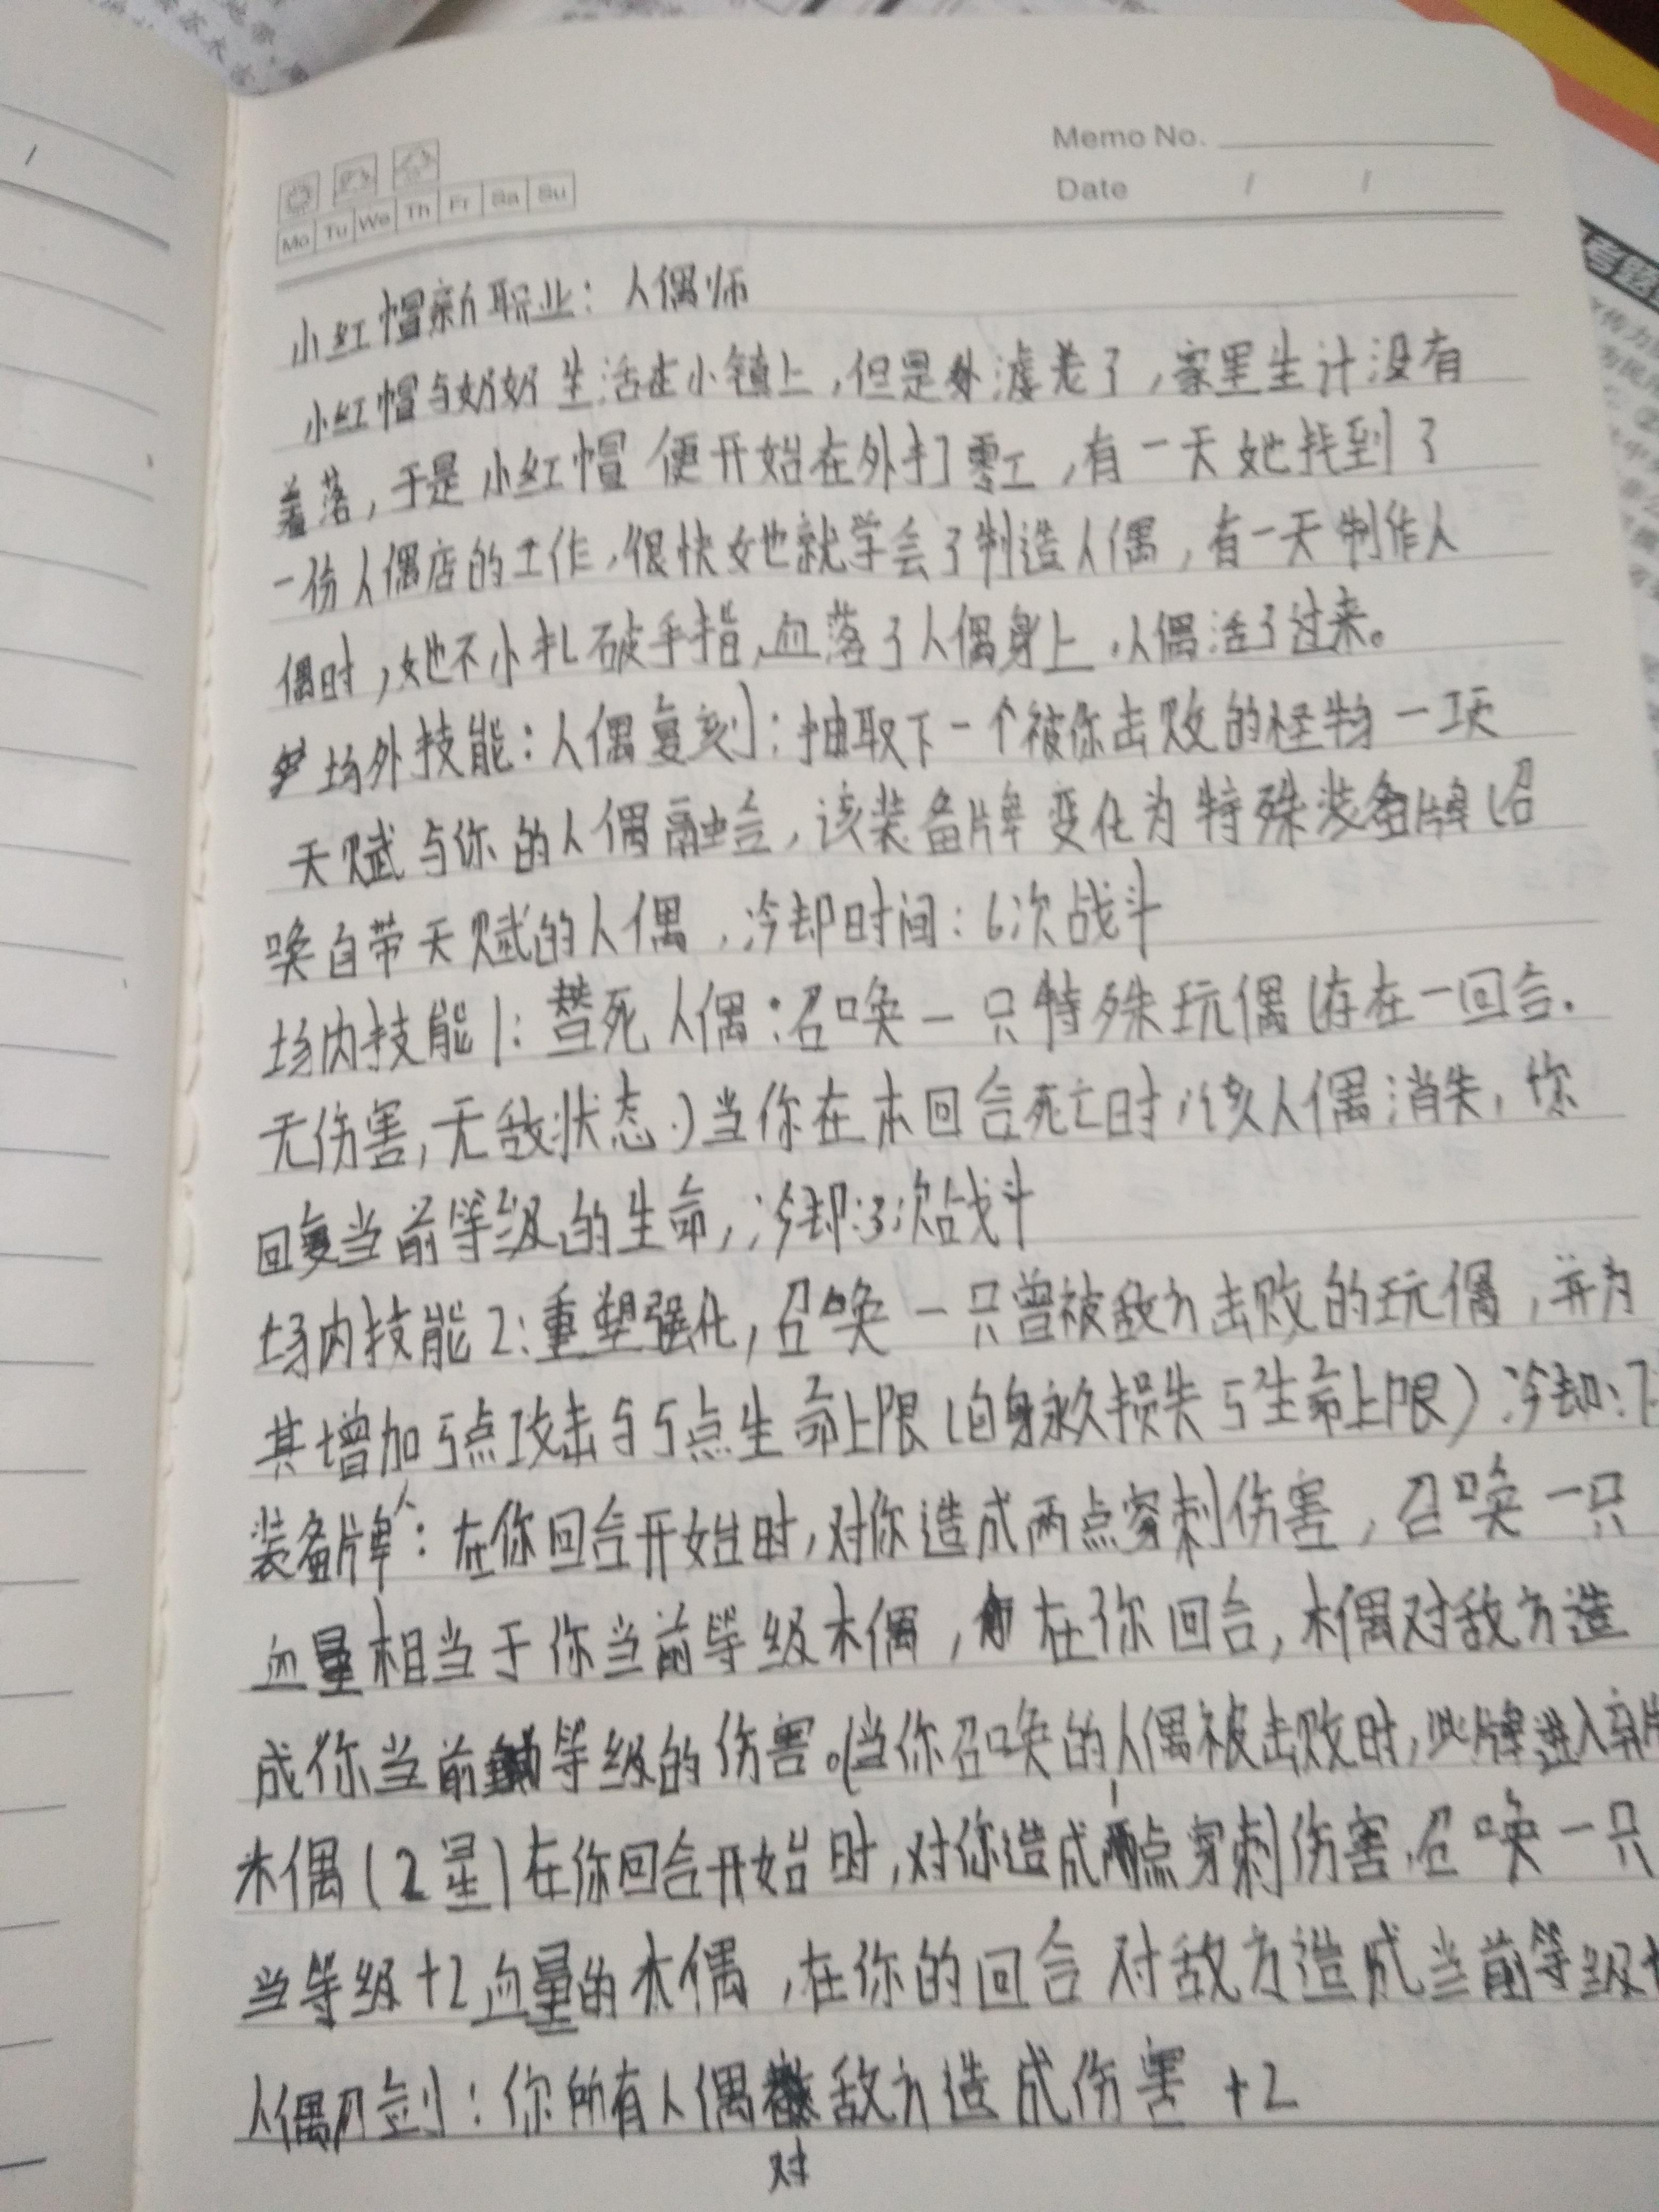 Memo No.
Date / /
Mo Tu We Th Fr Sa Su
小红帽新职业：人偶师
小红帽与奶奶生活在小镇上，但是外婆老了，家里生计没有
着落，于是小红帽便开始在外打零工，有一天她找到了
一份人偶店的工作，很快她就学会了制造人偶，有一天制作人
偶时，她不小扎破手指，血落了人偶身上，人偶活了过来。
场外技能：人偶复刻：抽取下一个被你击败的怪物一项
天赋与你的人偶融合，该装备牌变化为特殊装备牌（召
唤自带天赋的人偶，冷却时间：6次战斗
场内技能1：替死人偶：召唤一只特殊玩偶（存在一回合.
无伤害，无敌状态.）当你在本回合死亡时，该人偶消失，你
回复当前等级的生命，冷却：3次战斗
场内技能2：重塑强化，召唤一只曾被敌方击败的玩偶，并为
其增加5点攻击与5点生命上限（自身永久损失5生命上限）冷却：7
装备牌：在你回合开始时，对你造成两点穿刺伤害，召唤一只
血量相当于你当前等级木偶，在你回合，木偶对敌方造
成你当前等级的伤害。（当你召唤的人偶被击败时，此牌进入弃牌
木偶（2星）在你回合开始时，对你造成两点穿刺伤害，召唤一只
当等级+2血量的木偶，在你的回合对敌方造成当前等级+
人偶刀剑：你所有人偶对敌方造成伤害+2
考题